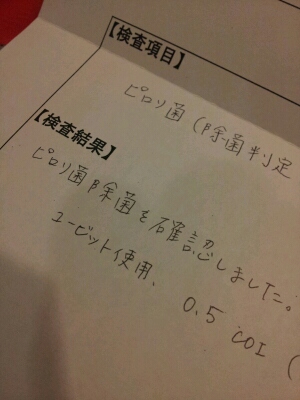 【検査項目】
ピロリ菌（除菌判定
【検査結果】
ピロリ菌除菌を確認しました。
ユービット使用、
0.5 COI (